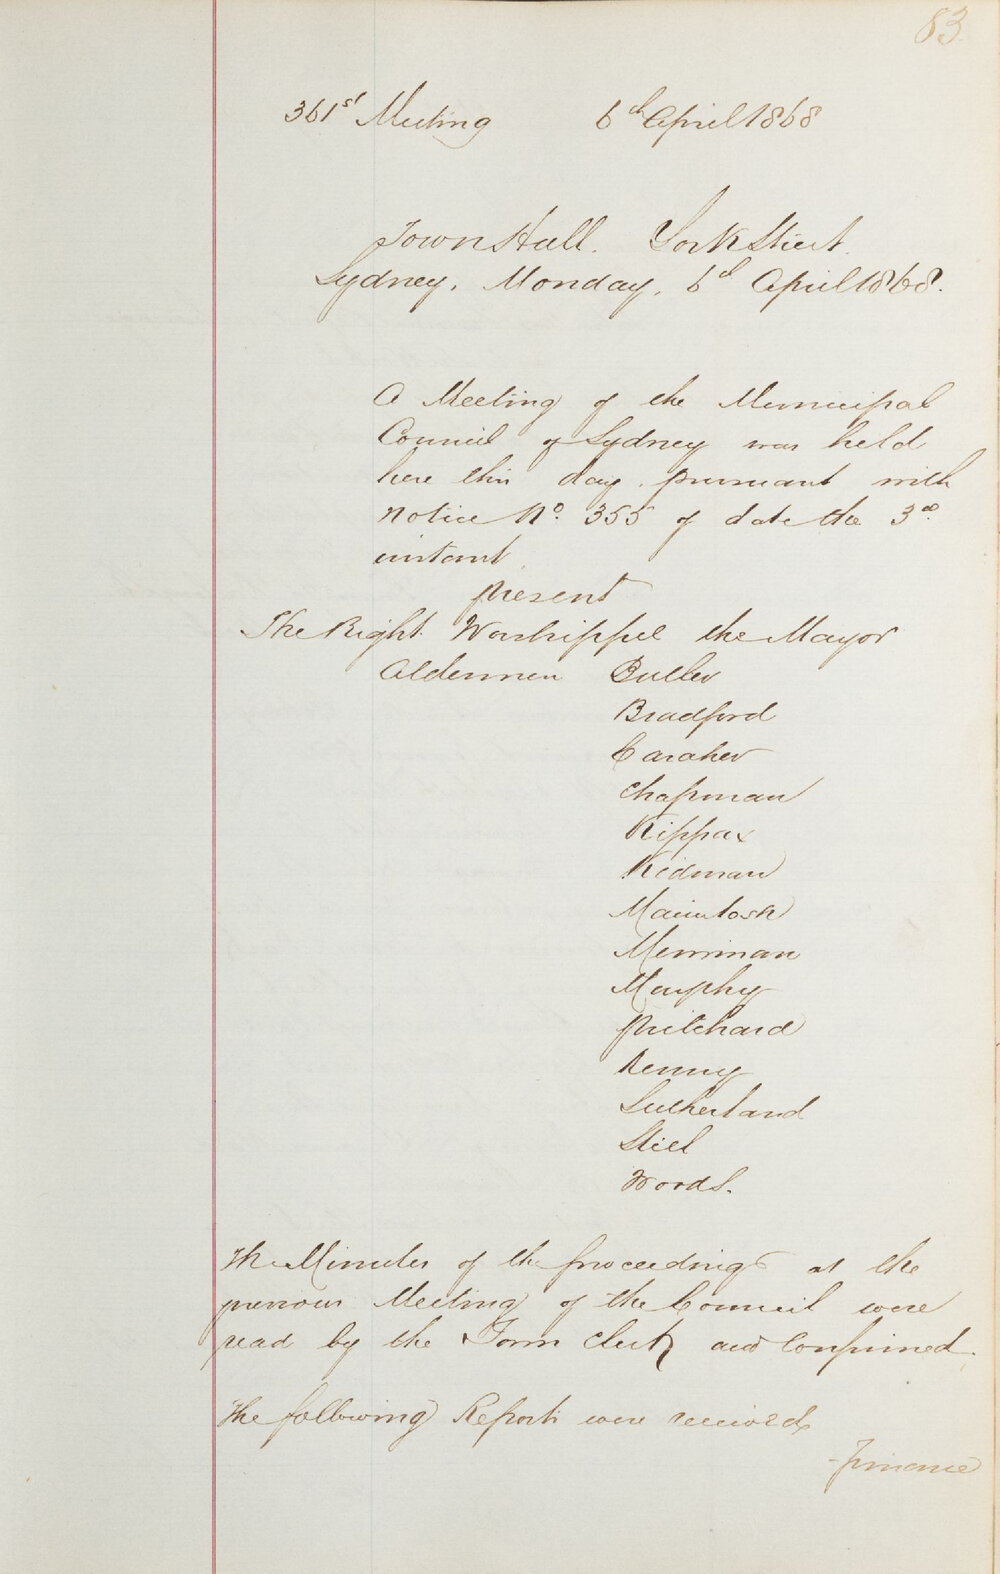 83.
361st Meeting 6th April 1868
Town Hall. York Street.
Sydney, Monday, 6th April 1868.
A Meeting of the Municipal
Council of Sydney was held
here this day, pursuant with
notice No. 355 of date the 3rd
instant
present
The Right Worshippel the Mayor
Aldermen Butler
Bradford
Caraher
Chapman
Kippax
Kidman
Macintosh
Merriman
Murphy
Pritchard
Renny
Sutherland
Steel
Woods.
The Minutes of the proceedings at the
previous Meeting of the Council were
read by the Town Clerk and Confirmed.
The following Reports were received
-Finance